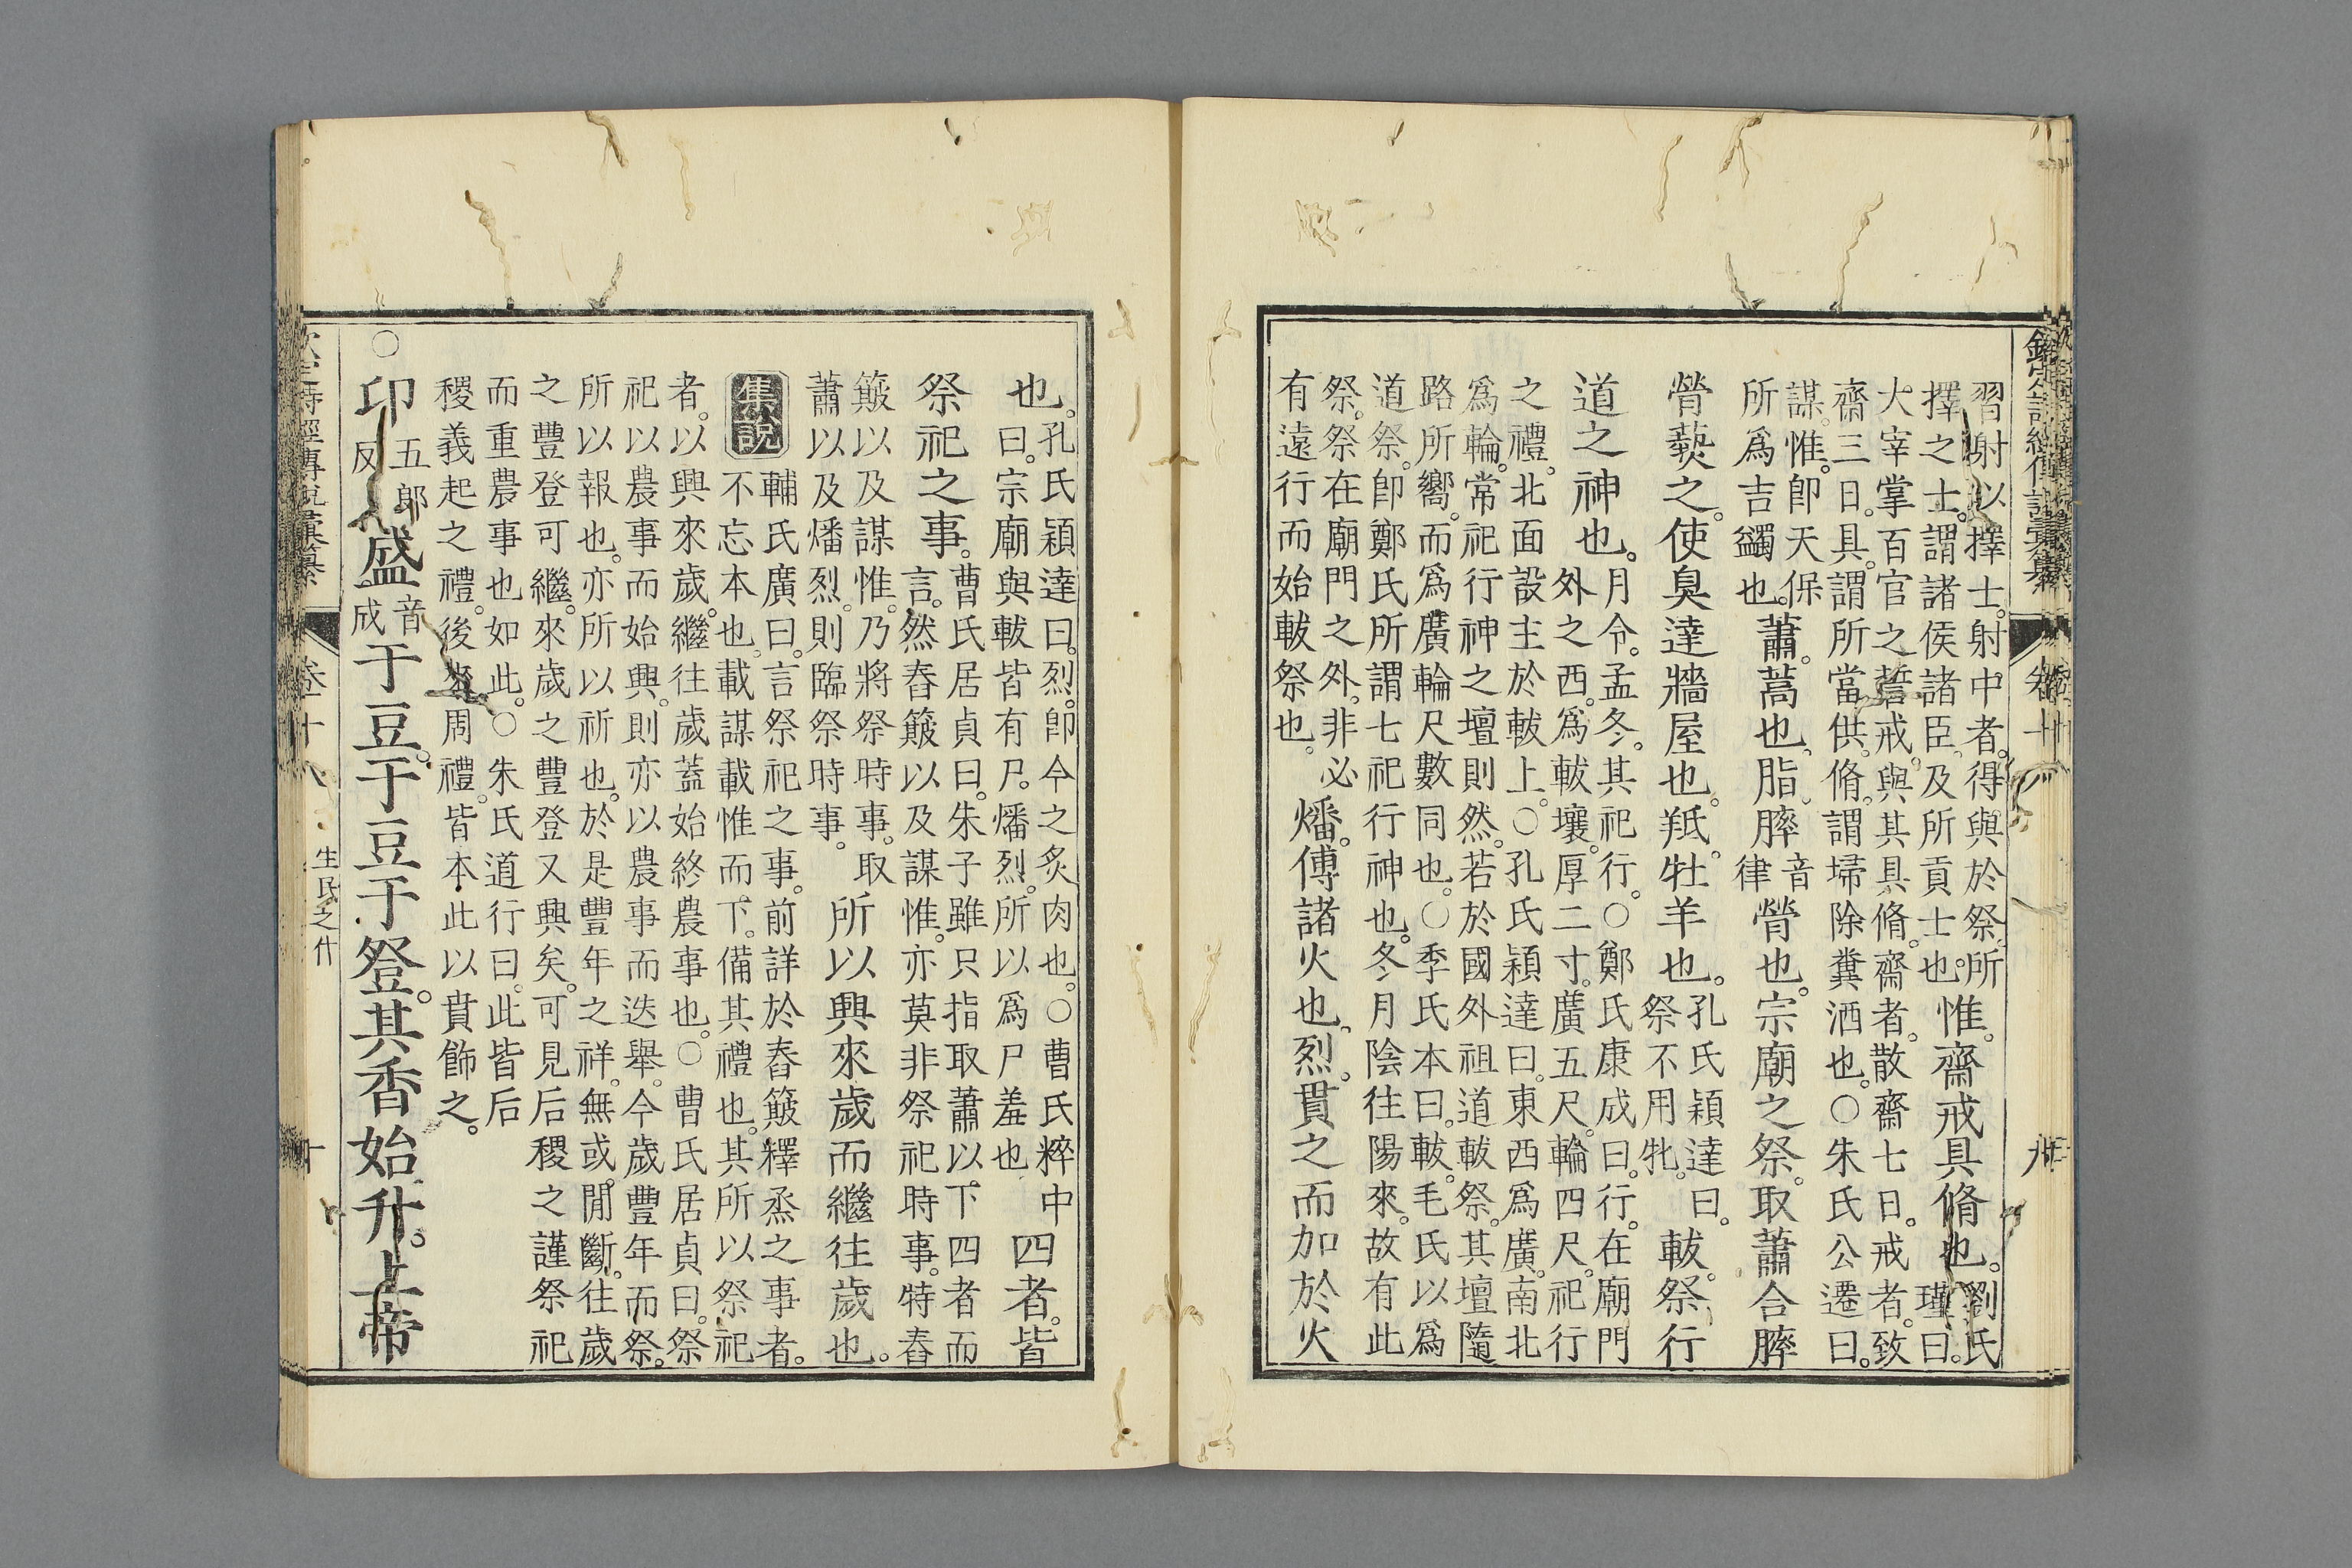 欽定詩經傳說彙纂
卷十八
習射以擇士。射中者。得與於祭。所
擇之士。謂諸侯諸臣。及所貢士也。
惟。齋戒具脩也。
劉氏
瑾曰。
大宰掌百官之誓戒。與其具脩。齋者。散齋七日。戒者。致
齋三日。具。謂所當供。脩。謂埽除糞洒也。○朱氏公遷曰。
謀。惟。卽天保
所爲吉蠲也。
蕭。蒿也。脂。膟
音
律
膋也。宗廟之祭。取蕭合膟
膋爇之。使臭達牆屋也。羝。牡羊也。
孔氏穎達曰。
祭不用牝。
軷。祭行
道之神也。
月令。孟冬。其祀行。○鄭氏康成曰。行。在廟門
外之西。爲軷壤。厚二寸。廣五尺。輪四尺。祀行
之禮。北面設主於軷上。○孔氏穎達曰。東西爲廣。南北
爲輪。常祀行神之壇則然。若於國外祖道軷祭。其壇隨
路所嚮。而爲廣輪尺數同也。○季氏本曰。軷。毛氏以爲
道祭。卽鄭氏所謂七祀行神也。冬月陰往陽來。故有此
祭。祭在廟門之外。非必
有遠行而始軷祭也。
燔。傅諸火也。烈。貫之而加於火
也。
孔氏穎達曰。烈。卽今之炙肉也。○曹氏粹中
曰。宗廟與軷皆有尸。燔烈。所以爲尸羞也
四者。皆
祭祀之事。
曹氏居貞曰。朱子雖只指取蕭以下四者而
言。然舂簸以及謀惟。亦莫非祭祀時事。特舂
簸以及謀惟。乃將祭時事。取
蕭以及燔烈。則臨祭時事。
所以興來歲而繼往歲也。
集說
輔氏廣曰。言祭祀之事。前詳於舂簸釋烝之事者。
不忘本也。載謀載惟而下。備其禮也。其所以祭祀
者。以興來歲。繼往歲。蓋始終農事也。○曹氏居貞曰。祭
祀以農事而始興。則亦以農事而迭舉。今歲豐年而祭。
所以報也。亦所以祈也。於是豐年之祥。無或閒斷。往歲
之豐登可繼。來歲之豐登又興矣。可見后稷之謹祭祀
而重農事也如此。○朱氏道行曰。此皆后
稷義起之禮。後來周禮。皆本此以賁飾之。
○卬
五郎
反
盛
音
成
于豆。于豆于登。其香始升。上帝
欽定詩經傳說彙纂
卷十八
生民之什
十